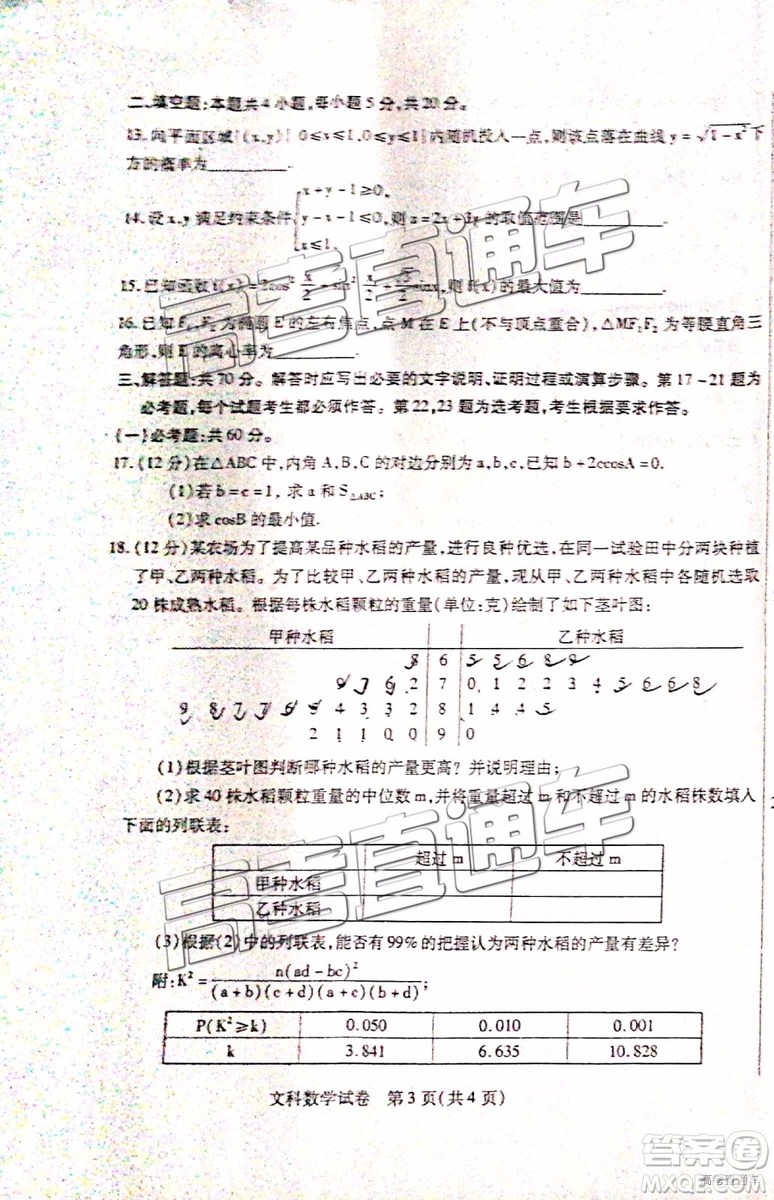 二、填空题:本题共4小题,每小题5分,共20分。
13.向平面区域{(x,y)| 0≤x≤1,0≤y≤1}内随机投入一点,则该点落在曲线y=√1-x²下
方的概率为________.
14.设x,y满足约束条件{x+y-1≥0, y-x-1≤0, x≤1. 则z=2x+3y的取值范围是________.
15.已知函数f(x)=2cos² x/2 -sin² x/2 + sinx,则f(x)的最大值为________.
16.已知F₁,F₂为椭圆E的左右焦点,点M在E上(不与顶点重合),△MF₁F₂为等腰直角三
角形,则E的离心率为________.
三、解答题:共70分。解答时应写出必要的文字说明、证明过程或演算步骤。第17-21题为
必考题,每个试题考生都必须作答。第22,23题为选考题,考生根据要求作答。
(一)必考题:共60分。
17.(12分)在△ABC中,内角A,B,C的对边分别为a,b,c,已知b+2ccosA=0.
(1)若b=c=1, 求a和S△ABC;
(2)求cosB的最小值.
18.(12分)某农场为了提高某品种水稻的产量,进行良种优选,在同一试验田中分两块种植
了甲、乙两种水稻。为了比较甲、乙两种水稻的产量,现从甲、乙两种水稻中各随机选取
20株成熟水稻。根据每株水稻颗粒的重量(单位:克)绘制了如下茎叶图:
甲种水稻 乙种水稻
8 6 5 5 6 8 9
9 7 6 2 7 0 1 2 2 3 4 5 6 6 8
9 8 7 7 6 5 5 4 3 3 2 8 1 4 4 5
2 1 1 0 9 0
(1)根据茎叶图判断哪种水稻的产量更高?并说明理由;
(2)求40株水稻颗粒重量的中位数m,并将重量超过m和不超过m的水稻株数填入
下面的列联表:
超过m 不超过m
甲种水稻
乙种水稻
(3)根据(2)中的列联表,能否有99%的把握认为两种水稻的产量有差异?
附:K²=n(ad-bc)²/(a+b)(c+d)(a+c)(b+d);
P(K²≥k) 0.050 0.010 0.001
k 3.841 6.635 10.828
文科数学试卷 第3页(共4页)
高考直通车
高考直通车
答案圈
MXQE.COM